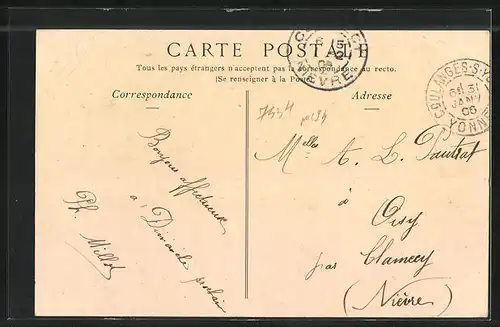 CARTE POSTALE
Tous les pays étrangers n'acceptent pas la correspondance au recto.
(Se renseigner à la Poste)
Correspondance
Adresse
NIÈVRE
COULANGES-S-Y
31
JANV
06
YONNE
Bonjour affectueux
à Dimanche prochain
Ph. Millot
Melles A. L. Pautrat
à
Oisy
par Clamecy
(Nièvre)